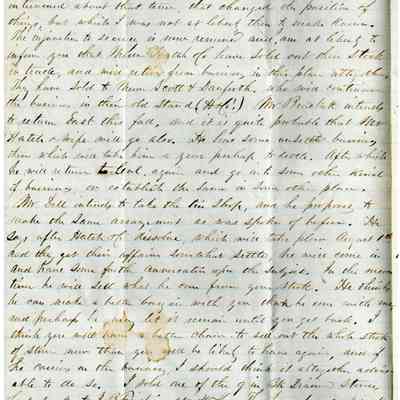 intervened about that time, that changed the position of
things, but which I was not at liberty then to make known.
The injunction to secrecy is now removed and am at liberty to
inform you that Hatch & Co have sold out their stock
in trade, and will retire from business in this place altogether.
They have sold to Scott & Danforth, who will continue
the business in their old Stand (Hotel) Mr intends
to return East this fall, and it is quite probable that Mr
Hatch & wife will go also. He has some unsettled business
there which will take him a year perhaps to settle. After which
he will return to again and go into some other kind
of business, or establish the same in some other place.
Mr. Dill intends to take the tin Shop, and he proposes to
make the same arrangement as was spoken of before. He
says after Hatch & Co dissolve, which will take place August 1st
and they get their affairs somewhat settled he will come in
and have some further conversation upon the subject. In the mean
time he will sell what he can from your stock. He thinks
he can make a better bargain with you than he can with me
and perhaps let it remain until you get back. I
think you will have a better chance to sell out the whole stock
of Store now than you will be likely to have again, and if
he carries on the business, I should think it altogether advis-
able to do so. I sold one of the Stoves,